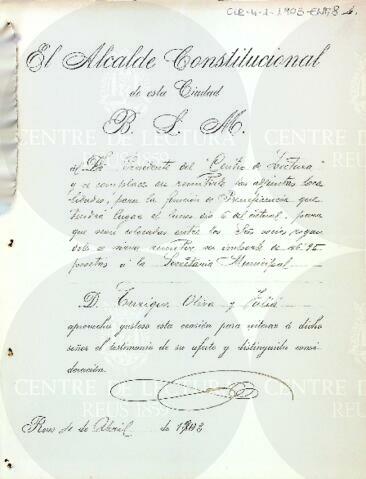 CLR-4-1-1903-ENT/3
El Alcalde Constitucional
de esta Ciudad
B. L. M.
al Sr. Presidente del "Centro de Lectura"
y se complace en remitirle las adjuntas loca
lidades, para la función de Beneficencia que
tendrá lugar el lunes día 6 del actual, para
que sean colocadas entre los Sres socios, rogan
dole se sirva remitir su importe de 25
pesetas á la Secretaría Municipal
D. Enrique Oliva y
aprovecha gustoso esta ocasión para reiterar á dicho
señor el testimonio de su afecto y distinguida consi
deración.
Reus de Abril de 1903
CENTRE DE LECTURA
REUS 1859
CENTRE DE LECTURA
REUS 1859